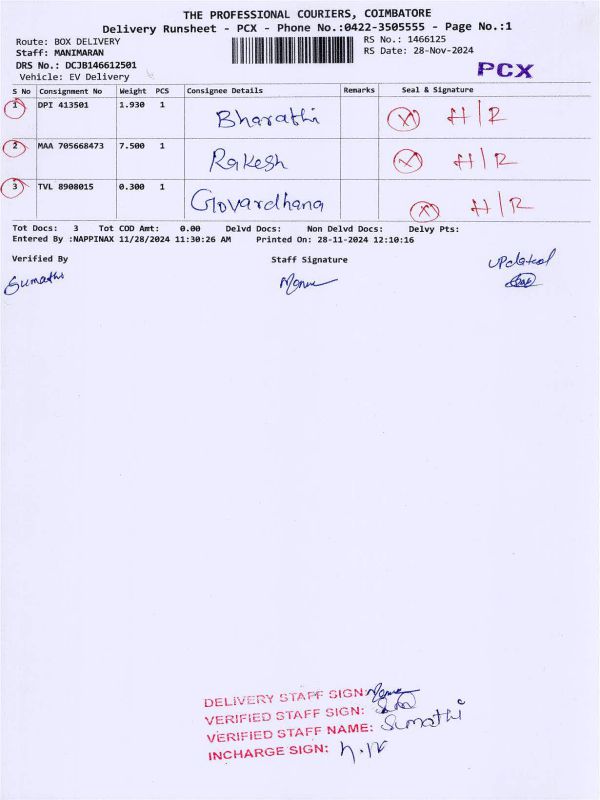 THE PROFESSIONAL COURIERS, COIMBATORE
Delivery Runsheet - PCX - Phone No.:0422-3505555 - Page No.:1
Route: BOX DELIVERY
RS No.: 1466125
Staff: MANIMARAN
RS Date: 28-Nov-2024
DRS No.: DCJB146612501
PCX
Vehicle: EV Delivery
S No Consignment No Weight PCS Consignee Details Remarks Seal & Signature
1 DPI 413501 1.930 1 Bharathi H/R
2 MAA 705668473 7.500 1 Rakesh H/R
3 TVL 8908015 0.300 1 Govardhana H/R
Tot Docs: 3 Tot COD Amt: 0.00 Delvd Docs: Non Delvd Docs: Delvy Pts:
Entered By :NAPPINAX 11/28/2024 11:30:26 AM Printed On: 28-11-2024 12:10:16
Verified By Staff Signature Updated
Sumathi
DELIVERY STAFF SIGN:
VERIFIED STAFF SIGN:
VERIFIED STAFF NAME: Sumathi
INCHARGE SIGN: